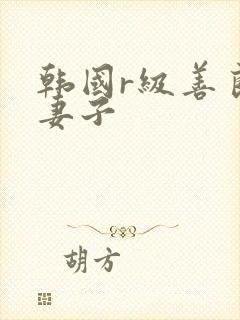 韩國r級善良
妻子
胡方